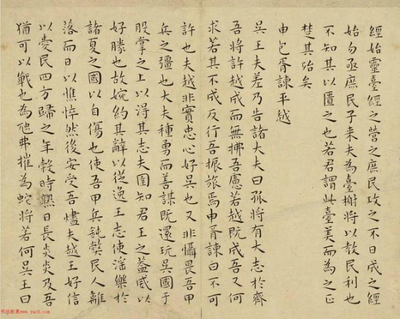 經始靈臺經之營之庶民攻之不日成之經
始勿亟庶民子來夫為臺榭將以教民利也
不知其以匱之也若君謂此臺美而為之正
楚其殆矣
申包胥諫平越
吳王夫差乃告諸大夫曰孤將有大志於齊
吾將許越成而無拂吾慮若越既成吾又何
求若其不成反行吾振旅焉申胥諫曰不可
許也夫越非實忠心好吳也又非懾畏吾甲
兵之彊也大夫種勇而善謀既還玩吳國于
股掌之上以得其志夫固知君王之蓋威以
好勝也故婉約其辭以從逸王志使淫樂於
諸夏之國以自傷也使吾甲兵鈍獘民人離
落而日以憔悴然後安受吾燼夫越王好信
以愛民四方歸之年穀時熟日長炎炎及吾
猶可以戰也為虺弗摧為蛇將若何吳王曰